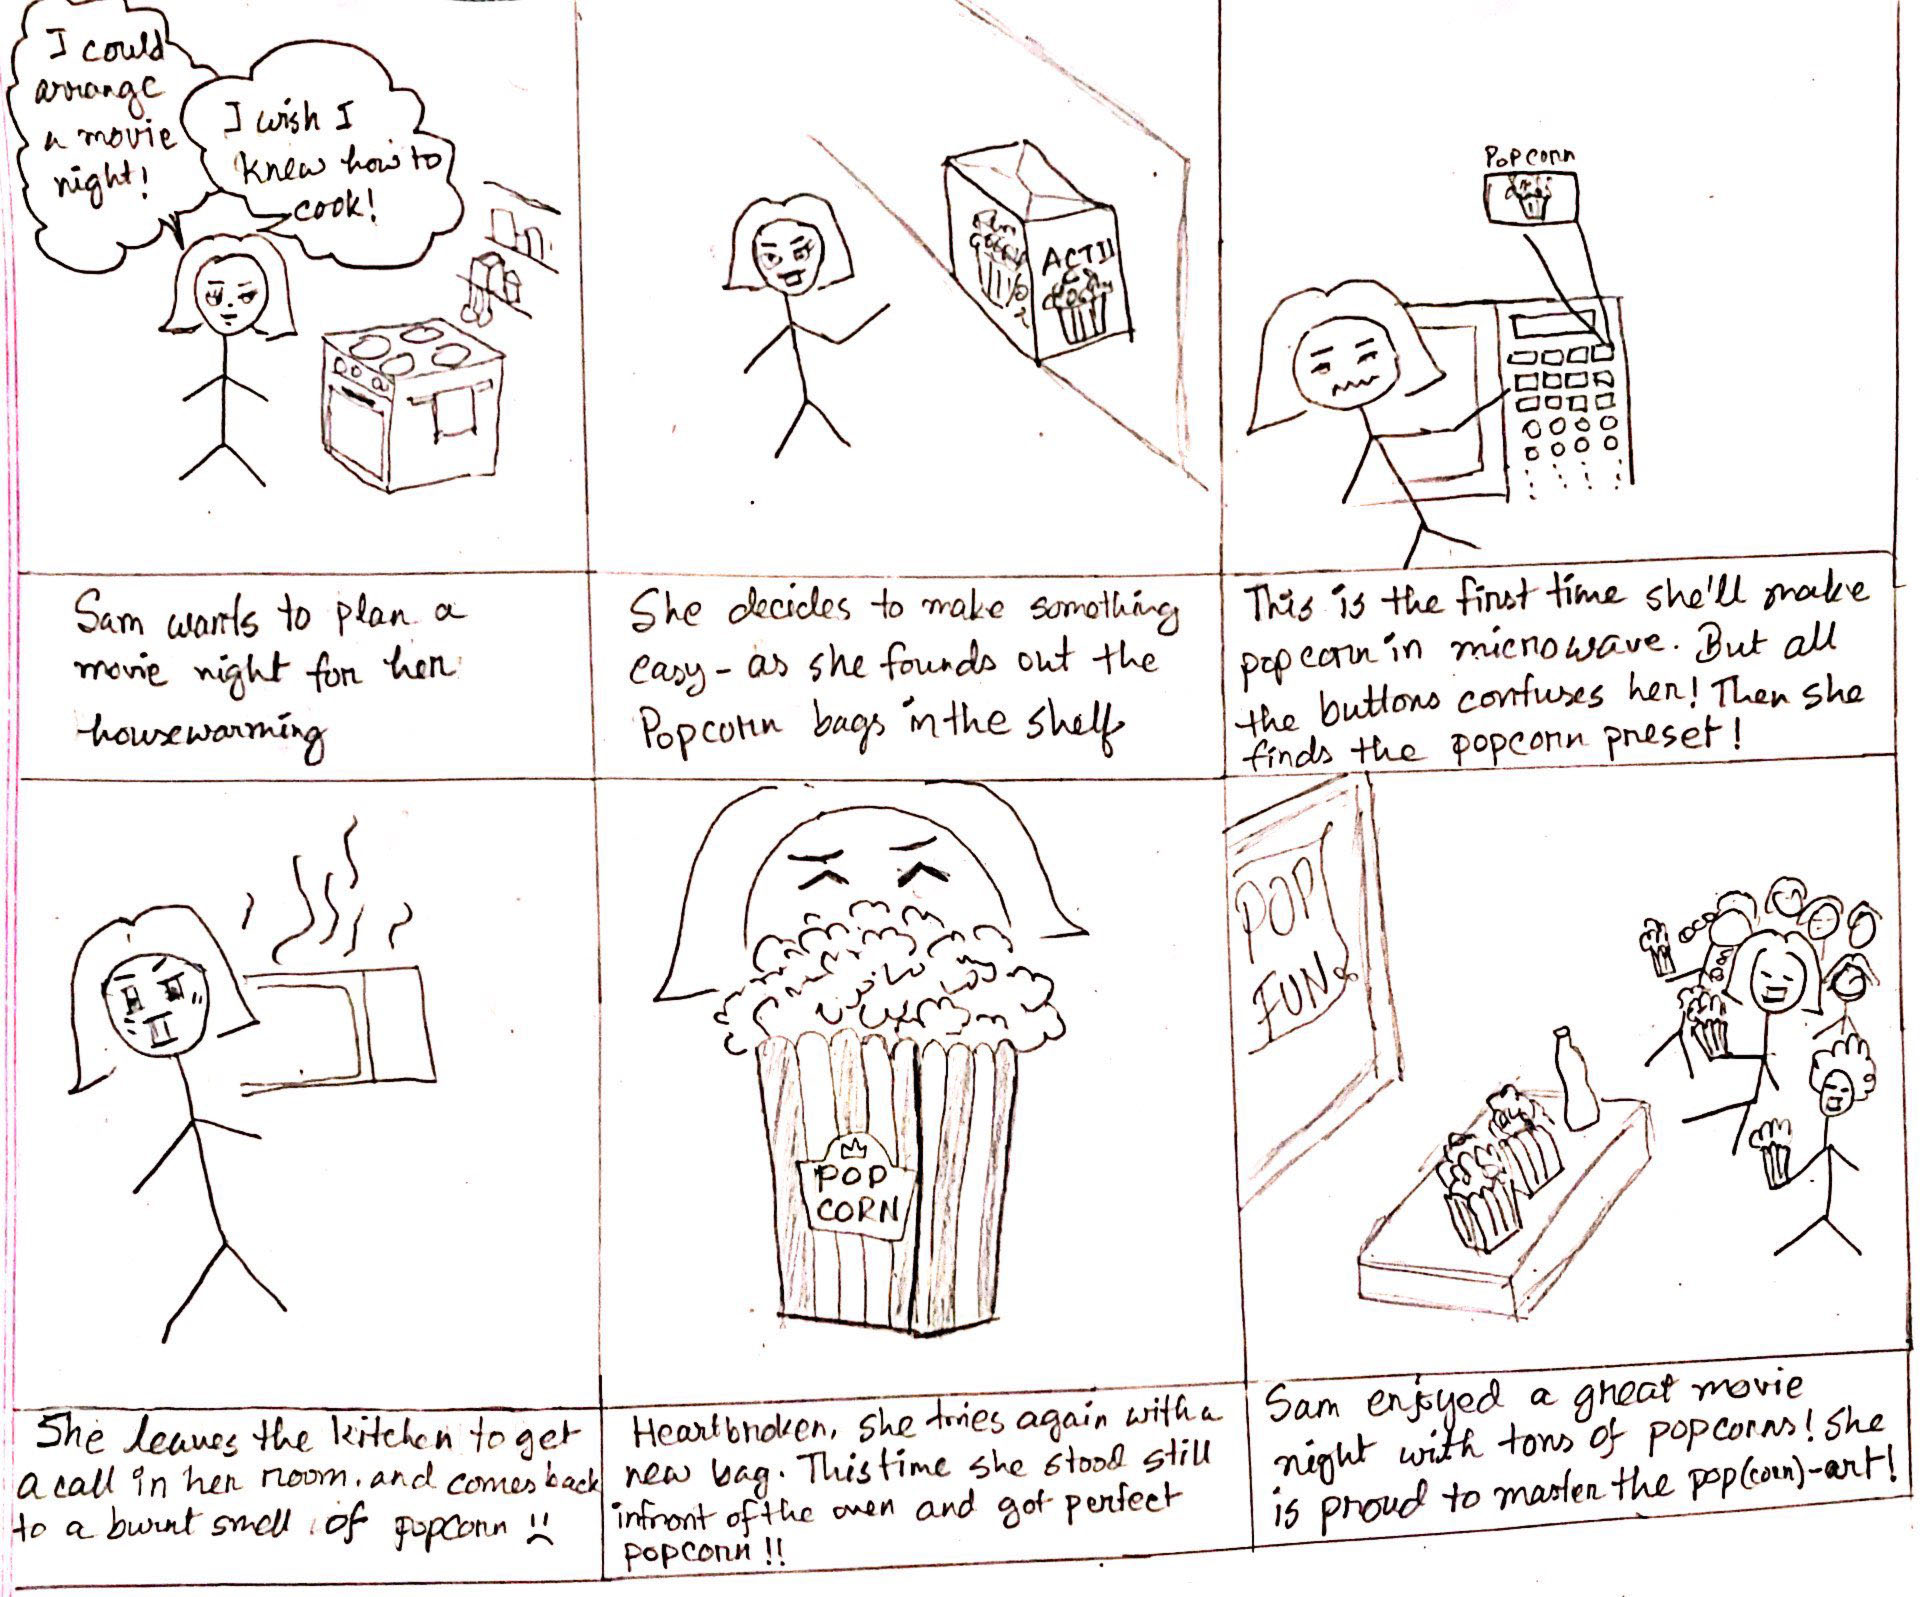 I could
arrange
a movie
night!
I wish I
knew how to
cook!
Sam wants to plan a
movie night for her
housewarming
ACT II
She decides to make something
easy - as she founds out the
Popcorn bags in the shelf
Popcorn
This is the first time she'll make
popcorn in microwave. But all
the buttons confuses her! Then she
finds the popcorn preset!
She leaves the kitchen to get
a call in her room. and comes back
to a burnt smell of popcorn !!
POP
CORN
Heartbroken, she tries again with a
new bag. This time she stood still
infront of the oven and got perfect
popcorn!!
POP
FUN
Sam enjoyed a great movie
night with tons of popcorns! She
is proud to master the pop(corn)-art!